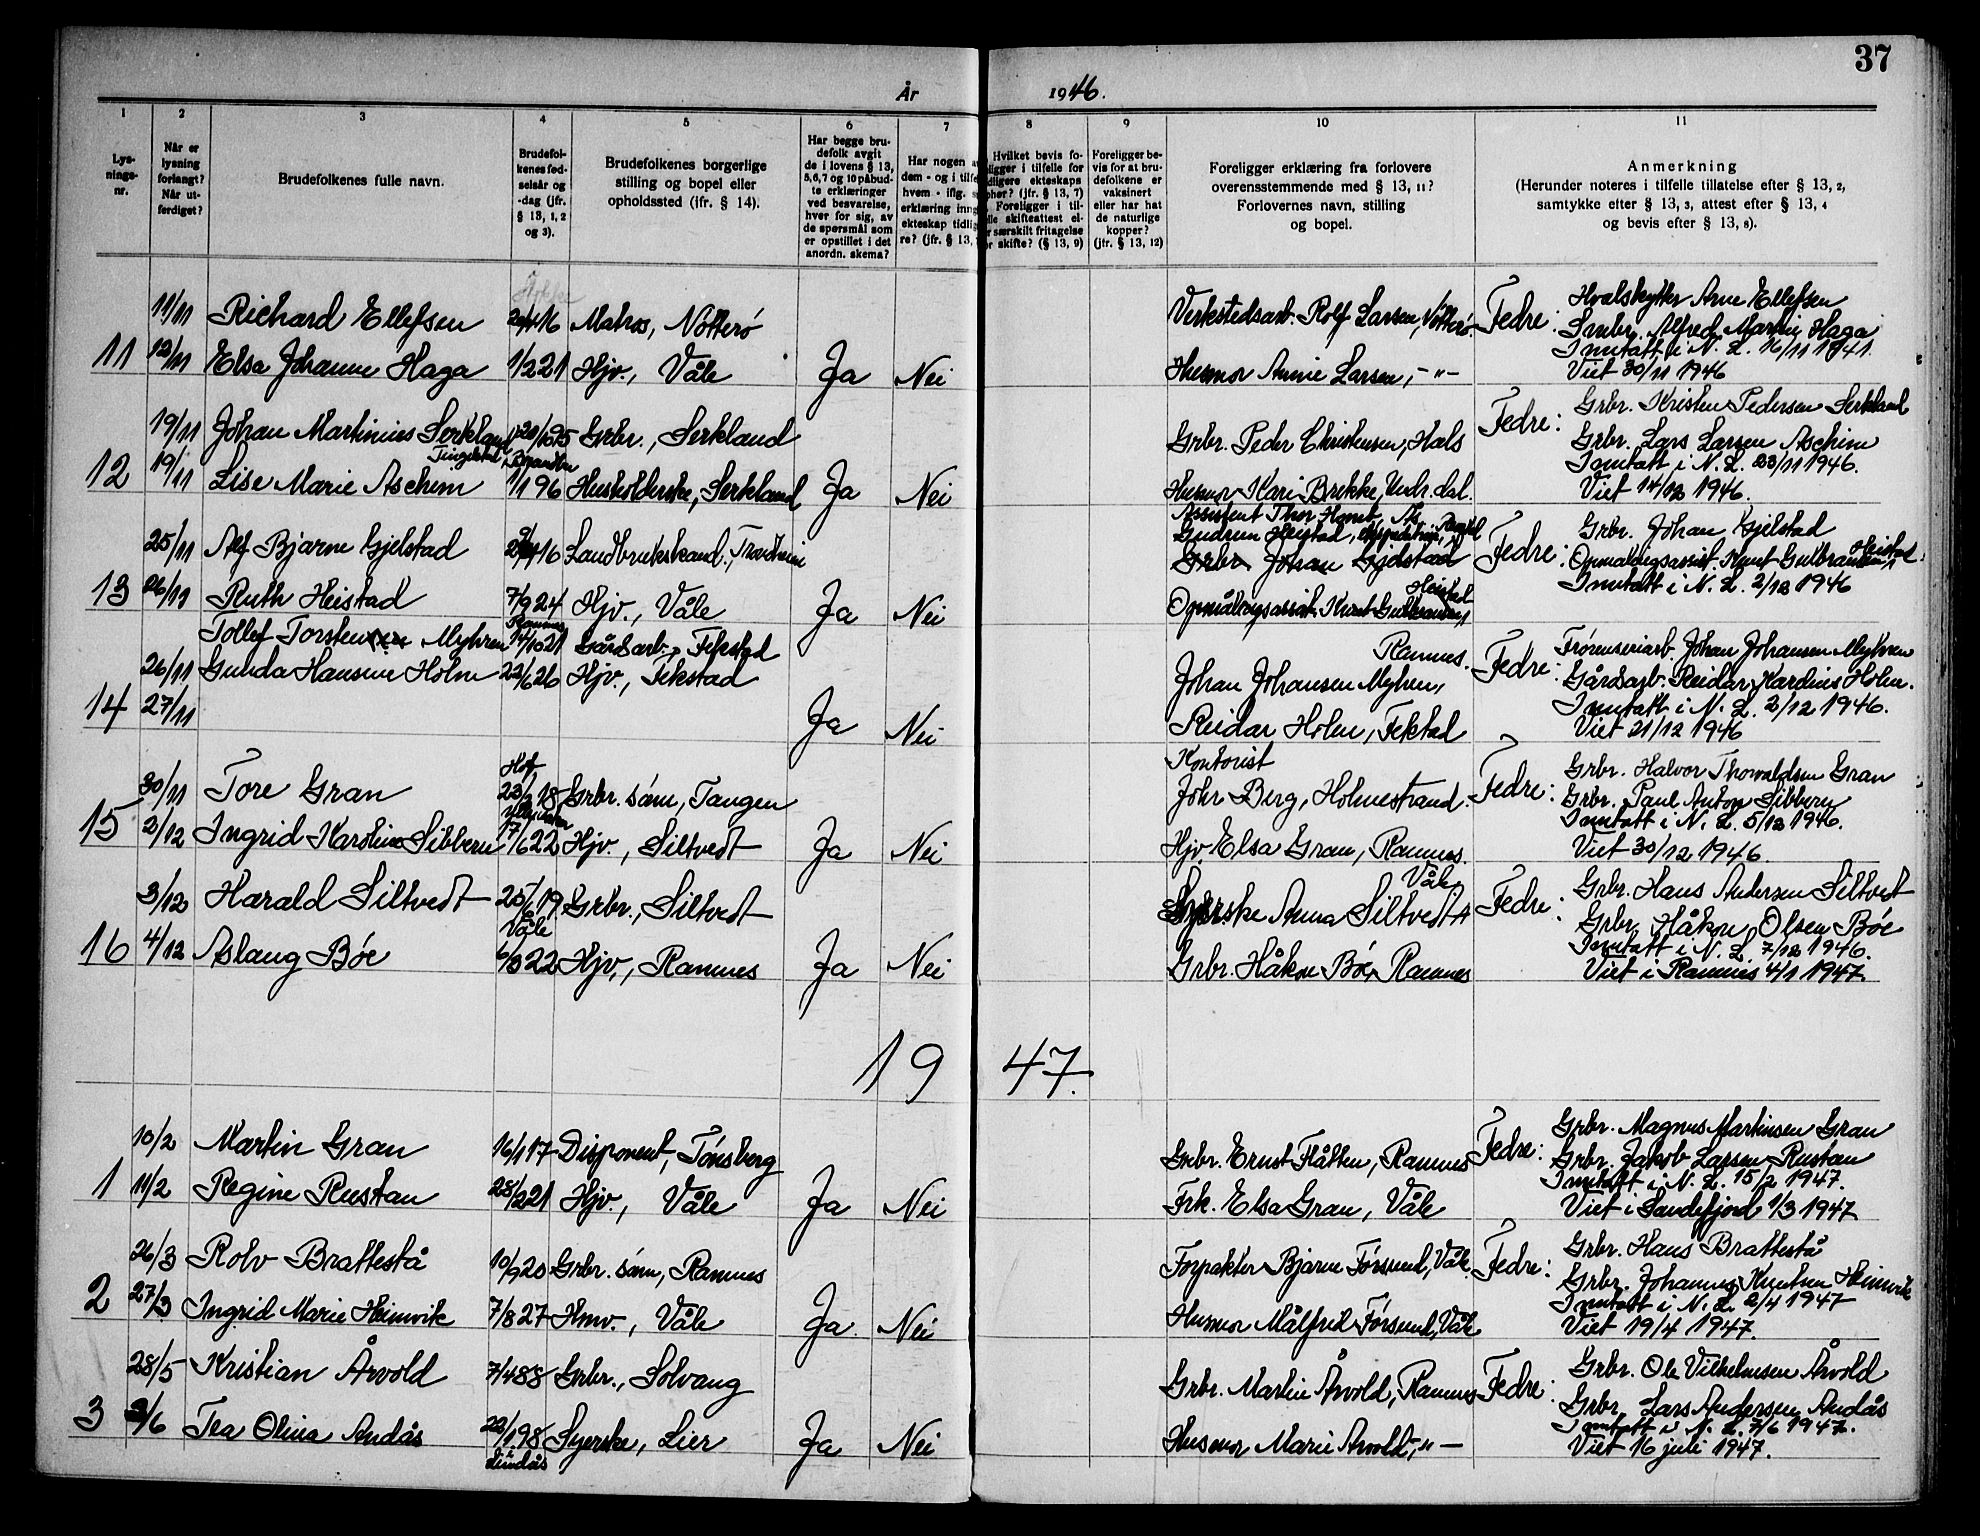 37
År 1946.
1 2 3 4 5 6 7 8 9 10 11
Lysnings-nr.
Når er lysning forlangt? Når utferdiget?
Brudefolkenes fulle navn.
Brudefolkenes fødselsår og -dag (jfr. § 13, 1, 2 og 3).
Brudefolkenes borgerlige stilling og bopel eller opholdssted (jfr. § 14).
Har begge brudefolk avgit de i lovens § 13, 5, 6, 7 og 10 påbudte erklæringer ved besvarelse, hver for sig, av de spørsmål som er opstillet i det anordn. skema?
Har nogen av dem - og i tilfe hvem - iflg. erklæring inng ekteskap tidlig re? (jfr. § 13,
Hvilket bevis foligger i tilfelle for dligere ekteskaps pher? (jfr. § 13, 7) Foreligger i tille skifteattest eler særskilt fritagelse or skifte? (§ 13, 9)
Foreligger bevis for at brudefolkene er vaksinert eller har hat de naturlige kopper? (jfr. § 13, 12)
Foreligger erklæring fra forlovere overensstemmende med § 13, 11? Forlovernes navn, stilling og bopel.
Anmerkning (Herunder noteres i tilfelle tillatelse efter § 13, 2, samtykke efter § 13, 3, attest efter § 13, 4 og bevis efter § 13, 8).
11/11 Richard Ellefsen 16 Matros, Nøtterø Verkstedsarb. Rolf Larsen, Nøtterø. Fedre: Hvalskytter Arne Ellefsen
Smbr. Alfred Martin Haga
11 12/11 Elsa Johanne Haga 1/2 21 Hjv., Våle Ja Nei Husmor Annie Larsen, -"-
Inntatt i N. L. 16/11 1941.
Viet 30/11 1946
19/11 Johan Martinius Serkland 95 Grbr., Serkland Grbr. Peder Christensen, Hals Fedre: Grbr. Kristen Pedersen Serkland
Tingelstad, Brandbu
Grbr. Lars Larsen Aschim
12 19/11 Lise Marie Aschem 1/1 96 Husholderske, Serkland Ja Nei Husmor Kari Brekke, Undr.dal.
Inntatt i N. L. 23/11 1946.
Viet 14/12 1946.
Assistent Thor
25/11 Alf Bjarne Gjelstad 16 Landbrukskand., Trondheim Gudrun Heistad, Fedre: Grbr. Johan Gjelstad
Grbr. Johan Gjelstad
Opmålingsassist. Knut Gulbrandsen Heistad
13 26/11 Ruth Heistad 7/9 24 Hjv., Våle Ja Nei Opmålingsassist. Knut Gulbrandsen Heistad
Inntatt i N. L. 2/12 1946
Ramnes
Tollef Torstensen Myhren 14/10 21 Gårdsarb., Fekstad Johan Johansen Myhren, Ramnes. Fedre: Johan Johansen Myhren
26/11 Gunda Hansine Holm 22/6 26 Hjv., Fekstad
Gårdsarb. Reidar Kardius Holm.
14 27/11 Ja Nei Reidar Holm, Fekstad
Inntatt i N. L. 2/12 1946.
Viet 21/12 1946
Hof Kontorist
30/11 Tore Gran 23/ 18 Grbr. sønn, Tangen Johr Berg, Holmestrand. Fedre: Grbr. Halvor Thorvaldsen Gran
Grbr. Paul Anton Sibbern
15 2/12 Ingrid Karoline Sibbern 17/6 22 Hjv., Siltvedt Ja Nei Hjv. Elsa Gran, Ramnes.
Inntatt i N. L. 5/12 1946.
Viet 30/12 1946.
3/12 Harald Siltvedt 25/1 19 Grbr., Siltvedt Syerske Anna Siltvedt, Våle Fedre: Grbr. Hans Andersen Siltvedt
Våle Grbr. Håkon Olsen Bøe
16 4/12 Aslaug Bøe 6/3 22 Hjv., Ramnes Ja Nei Grbr. Håkon Bø, Ramnes
Inntatt i N. L. 7/12 1946.
Viet i Ramnes 4/1 1947.
1947.
10/2 Martin Gran 16/1 17 Disponent, Tønsberg Grbr. Ernst Flåtten, Ramnes Fedre: Grbr. Magnus Martinsen Gran
Grbr. Jakob Larsen Rustan
1 11/2 Regine Rustan 28/2 21 Hjv., Våle Ja Nei Frk. Elsa Gran, Våle
Inntatt i N. L. 15/2 1947.
Viet i Sandefjord 1/3 1947
26/3 Rolv Brattestå 10/9 20 Grbr. sønn, Ramnes Forpakter Bjarne Førsund, Våle. Fedre: Grbr. Hans Brattestå
Grbr. Johannes Knutsen Heimvik
2 27/3 Ingrid Marie Heimvik 7/8 27 Hmv., Våle Ja. Nei Husmor Målfrid Førsund, Våle
Inntatt i N. L. 2/4 1947
Viet 19/4 1947.
28/5 Kristian Årvold 7/4 88 Grbr., Solvang Grbr. Martin Årvold, Ramnes Fedre: Grbr. Ole Vilhelmsen Årvold
Grbr. Lars Andersen Andås
3 3/6 Tea Olina Andås 23/1 98 Syerske, Lier Ja Nei Husmor Marie Årvold, "-
Inntatt i N. L. 7/6 1947.
Viet 16 juli 1947.